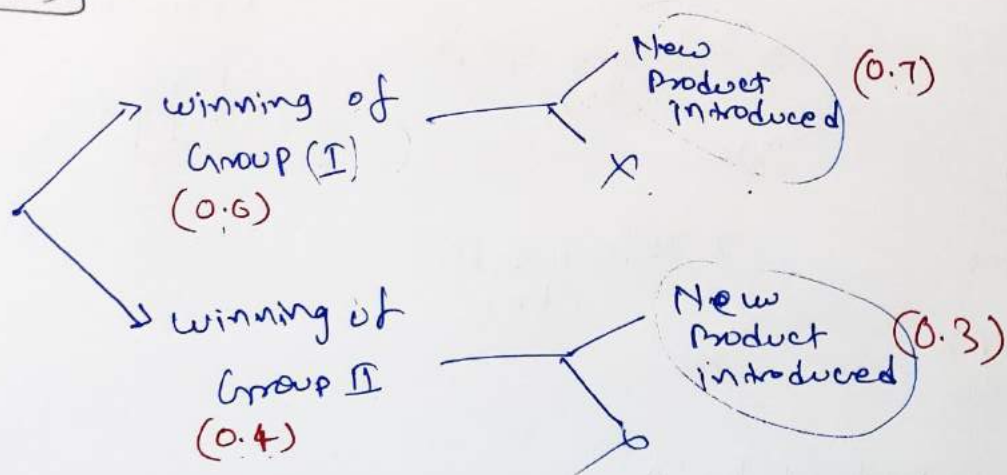 winning of
Group (I)
(0.6)
New
Product
introduced
(0.7)
X
winning of
Group II
(0.4)
New
Product
introduced
(0.3)